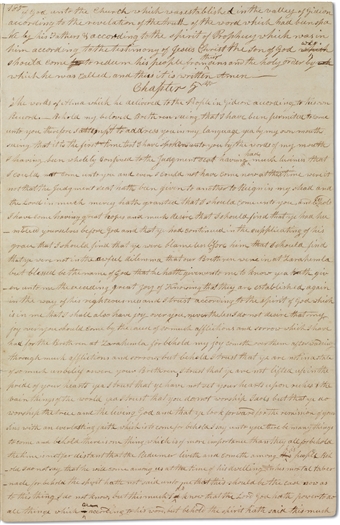 of God unto the Church which was established in the vally of gideon
according to the revelation of the truth of the word which had been spo
=ke by his Fathers & according to the spirit of Prophesy which was in
him according to the testimony of Jesus Christ the son of God who
should come to redeem his people from their sins & the holy order by
which he was called and thus it is written amen
Chapter 5th
The words of Alma which he delivered to the People in gideon according to his own
Record Behold my beloved Brethren seeing that I have been permitted to come
unto you therefore I attempt to address you in my language yea by my own mouth
seeing that it is the first time that I have spoken unto you by the words of my mouth
I having been wholely confined to the Judgment seat having had much business that
I could not come unto you and even I could not have come now at this time were it
not that the Judgment seat hath been given to another to Reign in my stead and
the Lord in much mercy hath granted that I should come unto you And behold
I have come having great hopes and much desire that I should find that ye had hum
bled yourselves before God and that ye had continued in the supplicating of his
grace that I should find that ye were blameless before him that I should find
that ye were not in the awful dilemma that our Brethren were in at zarahemla
but blessed be the name of God that he hath given me to know yea hath giv
en unto me the exceding great joy of knowing that they are established again
in the way of his righteousness and I trust according to the spirit of God which
is in me that I shall also have joy over you nevertheless I do not desire that my
joy over you should come by the cause of so much afflictions and sorrow which I have
had for the Brethren at zarahemla for behold my joy cometh over them after wading
through much afflictions and sorrow but behold I trust that ye are not in a state
of so much unbelief as were your Brethren I trust that ye are not lifted up in the
pride of your hearts yea I trust that ye have not set your hearts upon riches & the
vain things of the world yea I trust that you do not worship Idols but that ye do
worship the true and the living God and that ye look forward for the remission of your
sins with an everlasting faith which is to come for behold I say unto you there be many things
to come and behold there is one thing which is of more importance than they all for behold
the time is not far distant that the Redeemer liveth and cometh among his people Behold
I do not say that he will come among us at the time of his dwelling in his mortal taber
nacle for behold the spirit hath not said unto me that this should be the case now as
to this thing I do not know but this much I do know that the Lord God hath power to do
all things which is according to his word but behold the spirit hath said this much